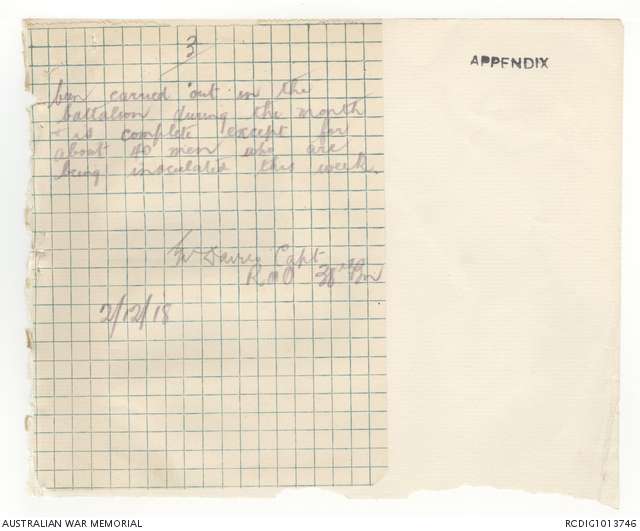 3
APPENDIX
been carried out in the
battalion during the month
& is complete except for
about 40 men who are
being inoculated this week.
Davies Capt
RMO 38th Bn
2/12/18
AUSTRALIAN WAR MEMORIAL
RCDIG1013746